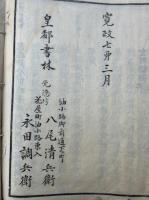 寛政七卯三月
皇都書林
油小路御前通下町
八尾清兵衛
花屋町油小路東入
永田調兵衛